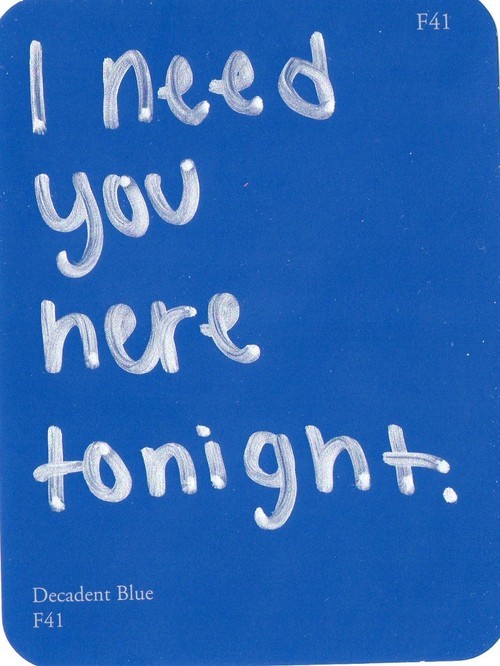 F41
I need
you
here
tonight.
Decadent Blue
F41